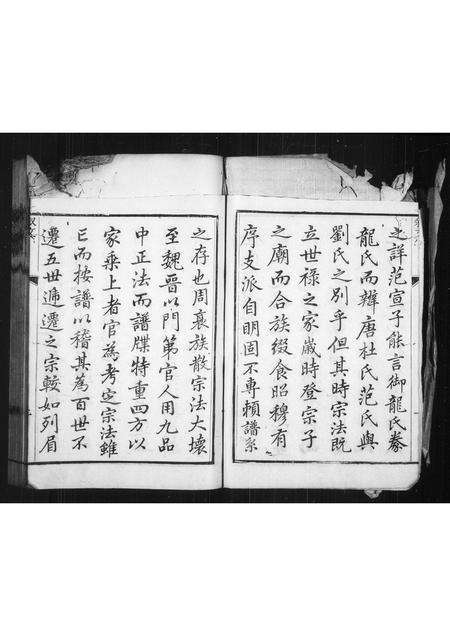 之詳范宣子能言御龍氏豢
龍氏而辨唐杜氏范氏與
劉氏之別乎但其時宗法既
立世祿之家歲時登宗子
之廟而合族綴食昭穆有
序支派自明固不專賴譜系
之存也周衰族散宗法大壞
至魏晉以門第官人用九品
中正法而譜牒特重四方以
家乘上者官為考定宗法雖
亡而按譜以稽其為百世不
遷五世遞遷之宗較如列眉